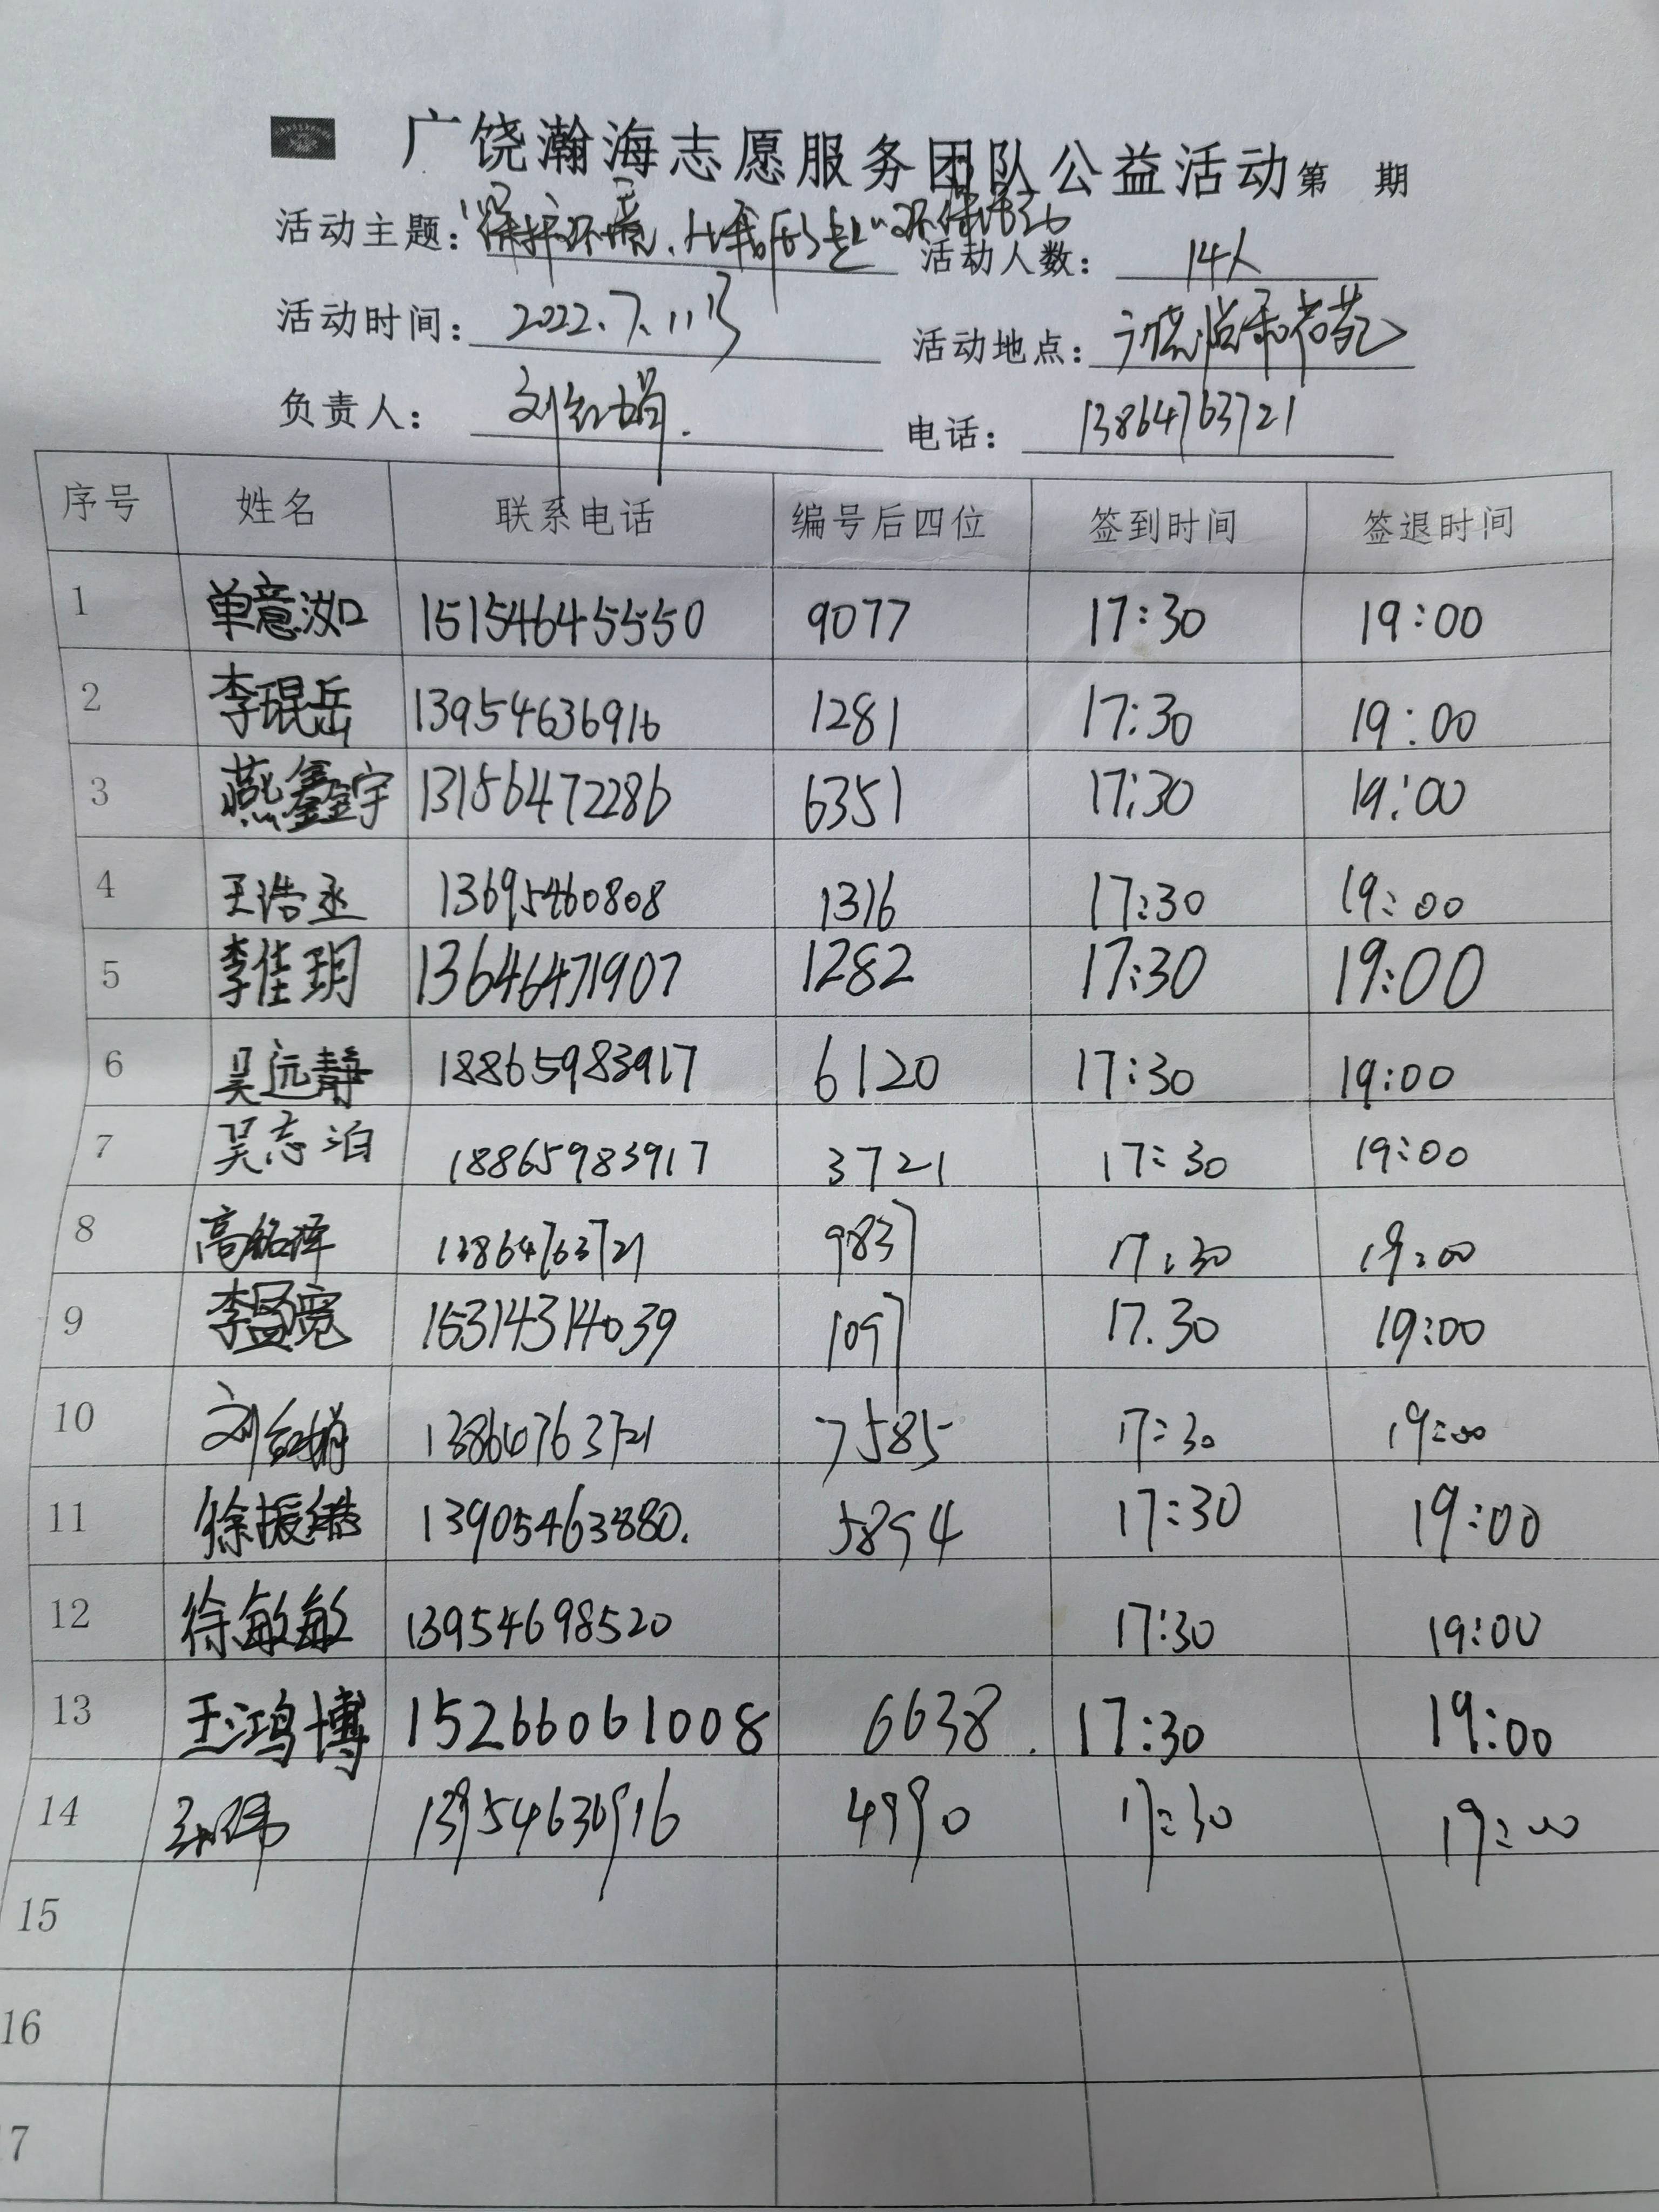 广饶瀚海志愿服务团队公益活动第 期
活动主题：“保护环境，从我做起”环保活动 活动人数：14人
活动时间：2022.7.11号 活动地点：广饶悦和尚苑
负责人：刘红娟. 电话：13864763721
序号 姓名 联系电话 编号后四位 签到时间 签退时间
1 单意汝 15154645550 9077 17:30 19:00
2 李琨岳 13954636916 1281 17:30 19:00
3 燕鑫宇 13156472286 6351 17:30 19:00
4 王浩丞 13695460808 1316 17:30 19:00
5 李佳玥 13646471907 1282 17:30 19:00
6 吴远静 18865983917 6120 17:30 19:00
7 吴志泊 18865983917 3721 17:30 19:00
8 高铭泽 13864763721 9837 17:30 19:00
9 李孟宽 1097 17.30 19:00
10 刘红娟 13864763721 7585 17:30 19:00
11 徐振 13905463880. 5894 17:30 19:00
12 徐敏敏 13954698520 17:30 19:00
13 王鸿博 15266061008 6638 17:30 19:00
14 13954636916 4990 17:30 19:00
15
16
7